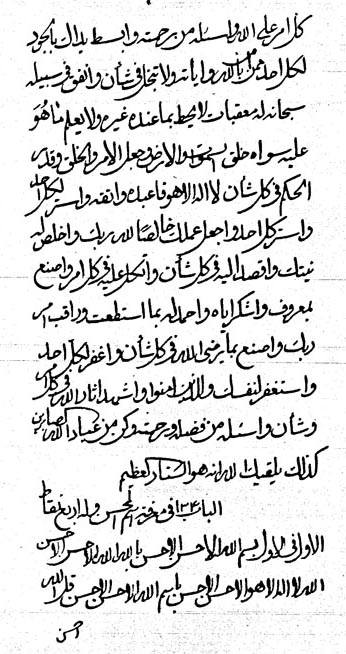 كل امر على الله واسئله من رحمته وابسط يداك بالجود
لكل احد من بالله واياته ولا تبخل في شأن وانفق في سبيله
سبحانه له معقبات لا يحيط بما عنده غيره ولا يعلم ما هو
عليه سواه خلق السموات والارض وجعل الامر والخلق وقدر
الحكم في كل شأن لا اله الا هو فاعبده واتقه واستر لكل احد
واستر كل احد واجعل عملك خالصا لله ربك واخلص له
نيتك واقصد اليه في كل شأن واتكل عليه في كل امر واصنع
بمعروف واشكر اياه واحمد له بما استطعت وراقب امر
ربك واصنع بما يرضى الله في كل شأن واغفر لكل احد
واستغفر لنفسك وللذين امنوا واشهد اثار الله في كل امر
وشأن واسئله من فضله ورحمته وكن من عباد الله الصابرين
كذلك يلقيك الله انه هو الستار العظيم
الباب في معرفة اسم الاحسن وله اربع نقاط
الاولى في الاول بسم الله الاحسن الاحسن بالله الله الاحسن الاحسن
الله لا اله الا هو الاحسن الاحسن باسم الله الاحسن الاحسن قل الله
احسن